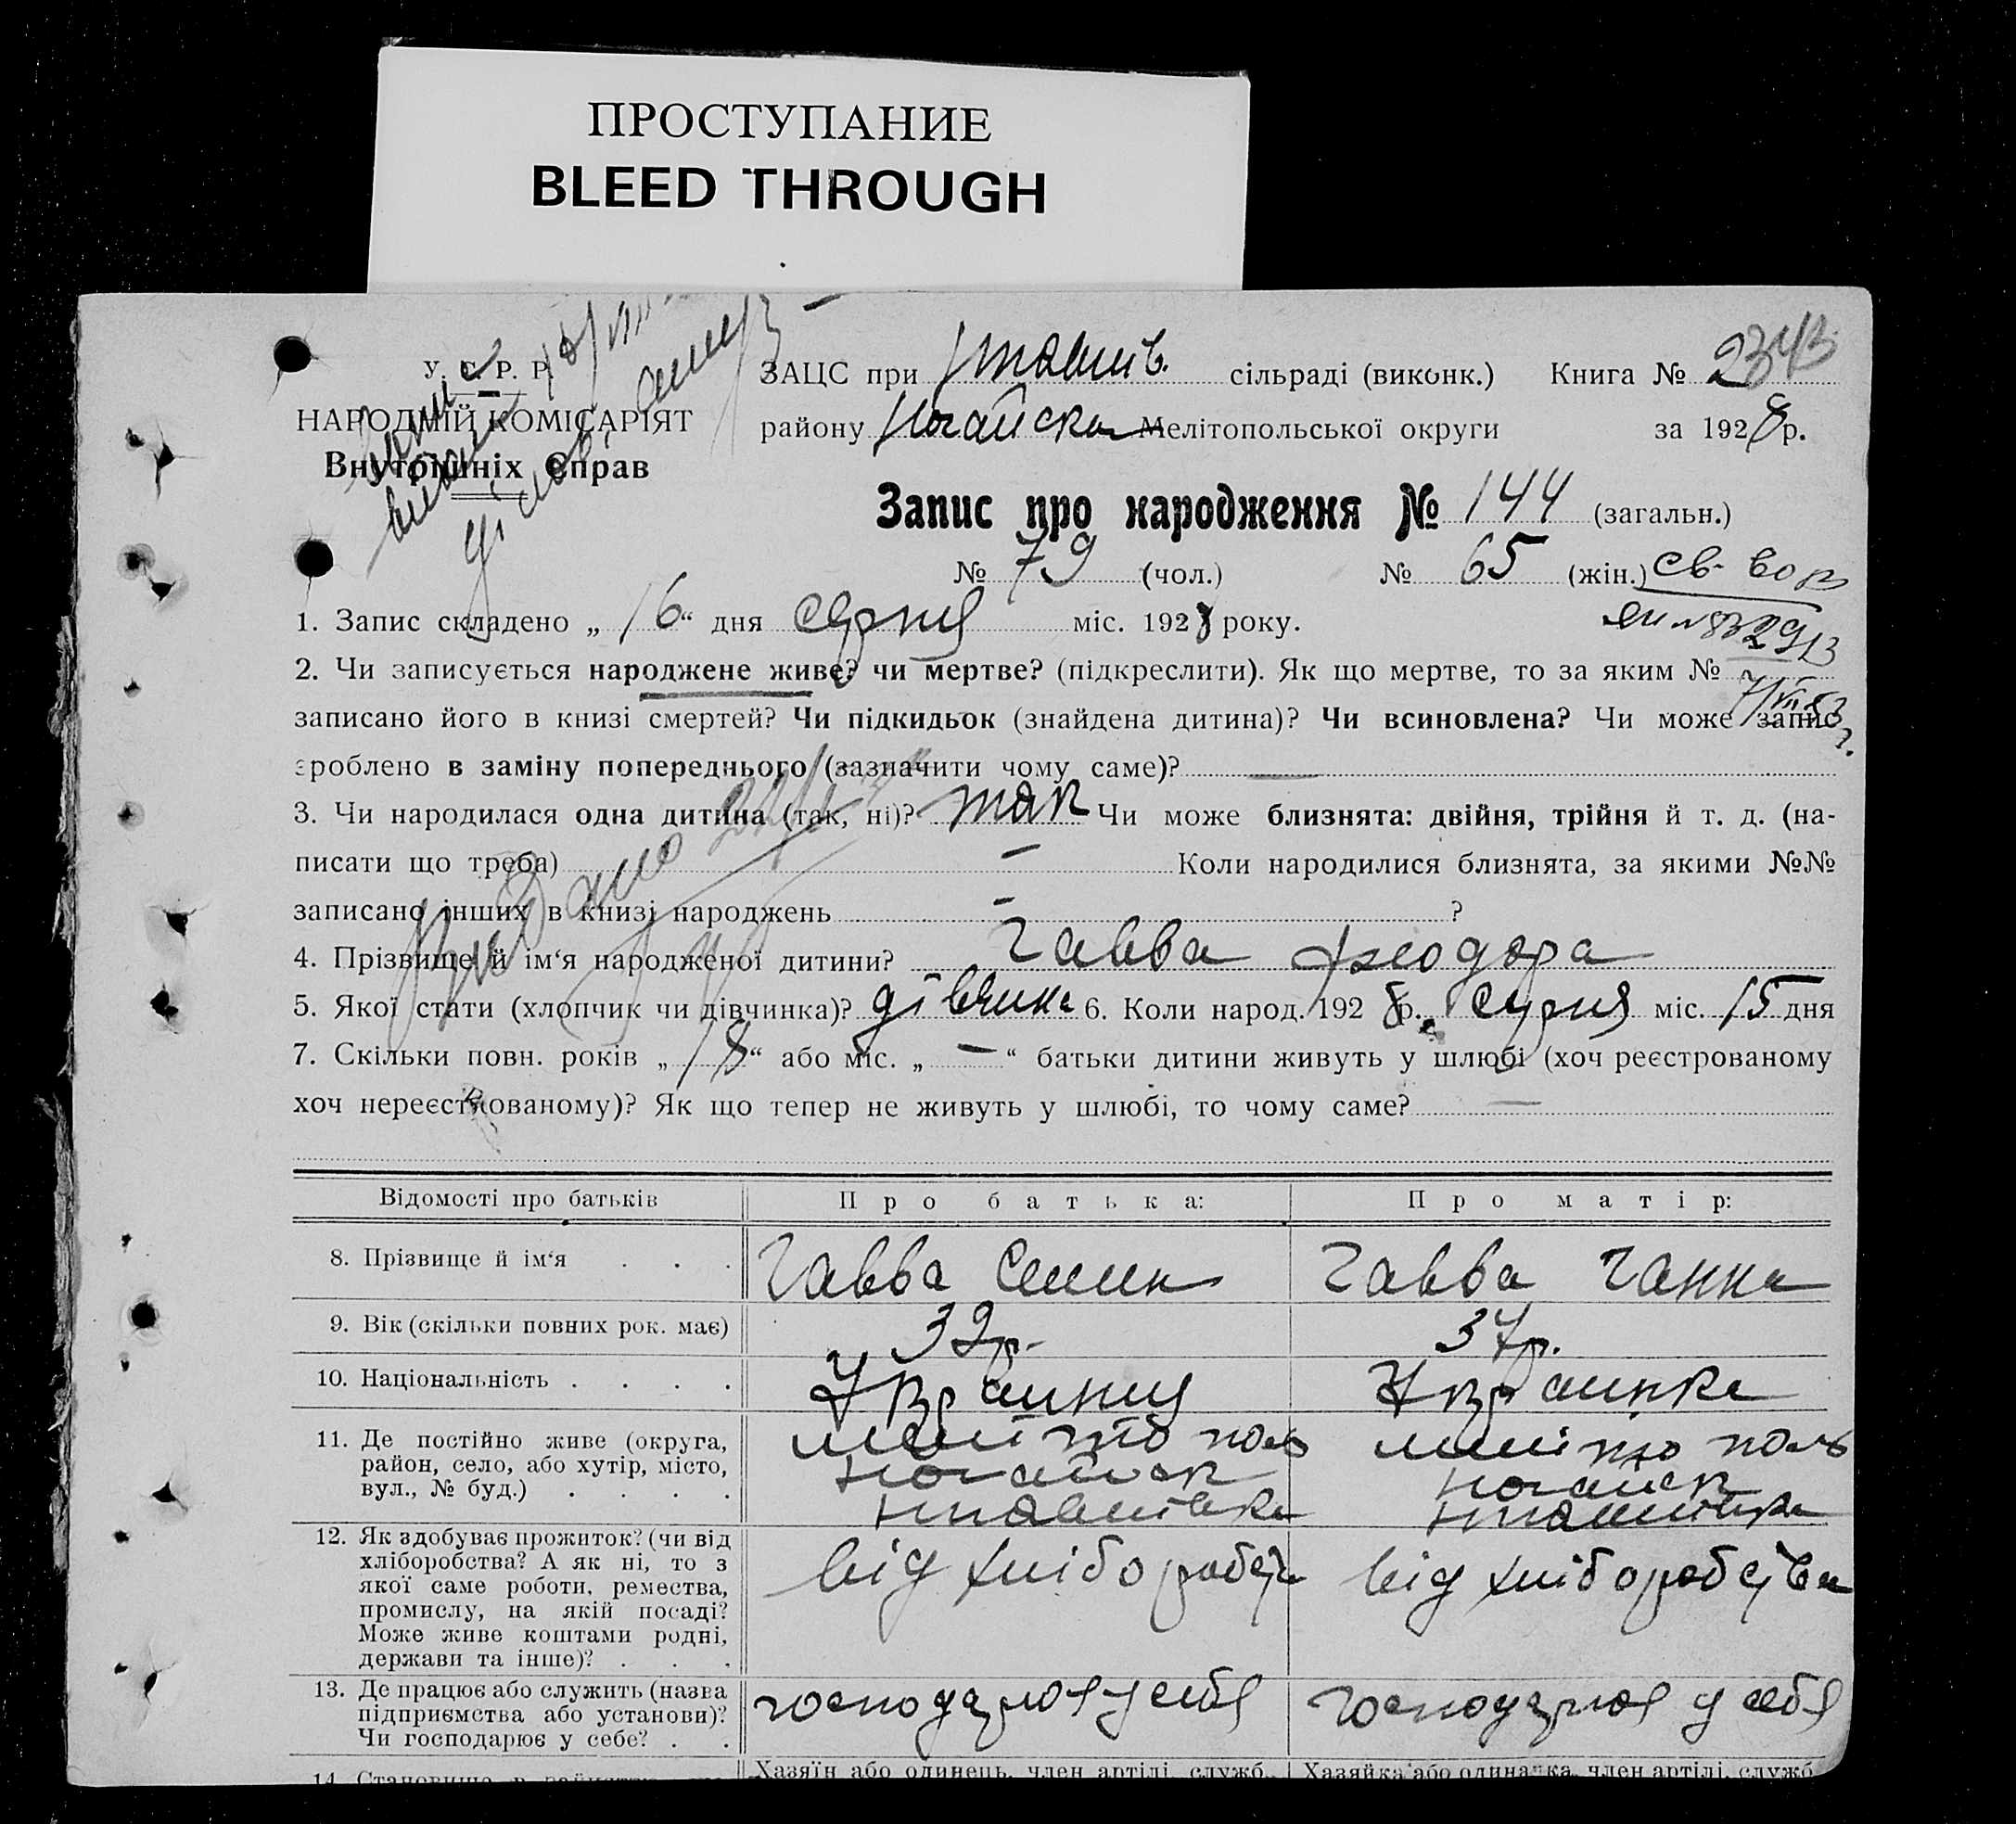 ПРОСТУПАНИЕ
BLEED THROUGH
У. С. Р. Р.
НАРОДНІЙ КОМІСАРІЯТ
Внутрішніх Справ
ЗАЦС при сільраді (виконк.) Книга №
району Ногайска Мелітопольської округи за 1928 р.
Запис про народження № 144 (загальн.)
№ 79 (чол.) № 65 (жін.)
1. Запис складено „16“ дня серпня міс. 1928 року.
2. Чи записується народжене живе? чи мертве? (підкреслити). Як що мертве, то за яким №
записано його в книзі смертей? Чи підкидьок (знайдена дитина)? Чи всиновлена? Чи може запис
зроблено в заміну попереднього (зазначити чому саме)? —
3. Чи народилася одна дитина (так, ні)? так Чи може близнята: двійня, трійня й т. д. (на-
писати що треба) — Коли народилися близнята, за якими №№
записано інших в книзі народжень — ?
4. Прізвище й ім‘я народженої дитини? Гавва Феодора
5. Якої стати (хлопчик чи дівчинка)? дівчинка 6. Коли народ. 1928 р. серпня міс. 15 дня
7. Скільки повн. років „18“ або міс. „—“ батьки дитини живуть у шлюбі (хоч реєстрованому
хоч нереєстрованому)? Як що тепер не живуть у шлюбі, то чому саме? —
Відомості про батьків Про батька: Про матір:
8. Прізвище й ім‘я . . . Гавва Семен Гавва Ганна
9. Вік (скільки повних рок. має) 39р. 37р.
10. Національність . . . . Українец Українка
11. Де постійно живе (округа,
район, село, або хутір, місто,
вул., № буд.) . . . .
Мелітополь Мелітополь
Ногайск Ногайск
12. Як здобуває прожиток? (чи від
хліборобства? А як ні, то з
якої саме роботи, ремества,
промислу, на якій посаді?
Може живе коштами родні,
держави та інше)? . . .
від хліборобства від хліборобства
13. Де працює або служить (назва
підприємства або установи)?
Чи господарює у себе? . .
господарює у себя господарює у себя
14. Становище в
Хазяїн або одинець, член артілі, служб. Хазяйка або одиначка, член артілі, служб.